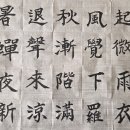 起微雨衣
風覺下羅
秋漸階滿
退聲來涼
暑夜新